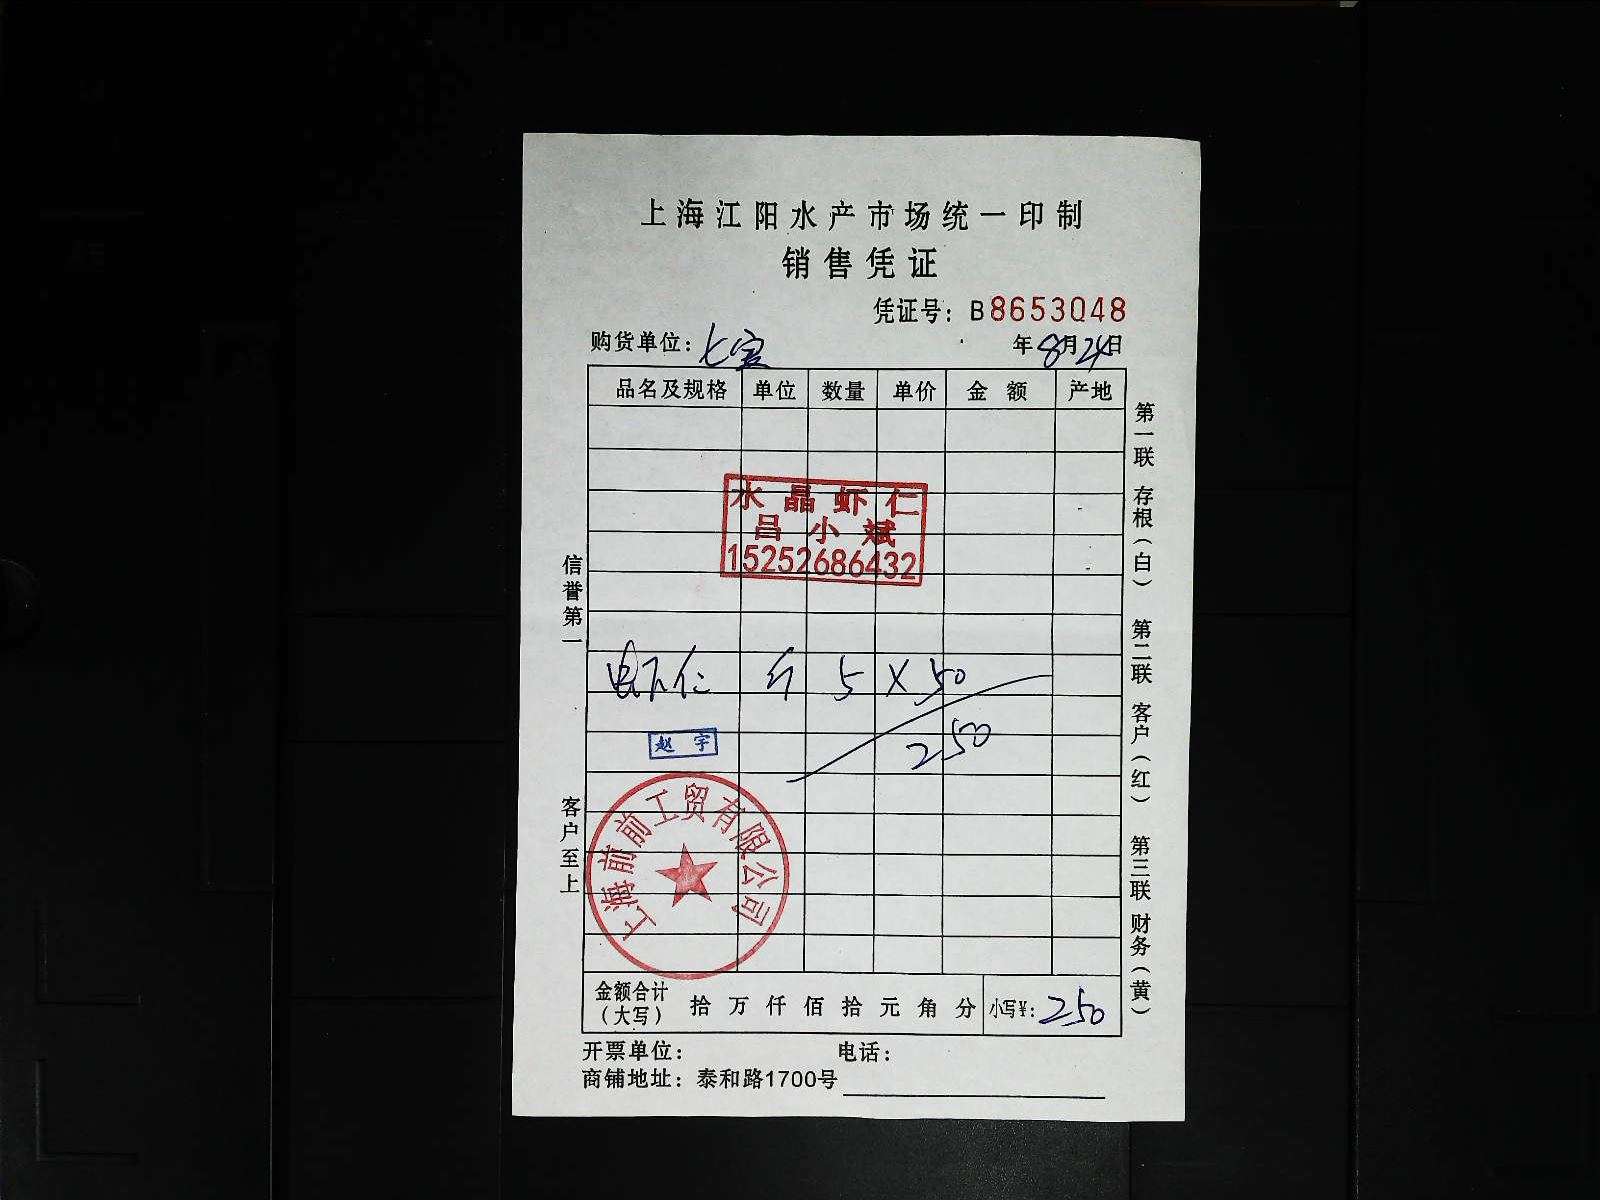 上海江阳水产市场统一印制
销售凭证
凭证号：B8653048
购货单位：七宝
年8月24日
品名及规格 单位 数量 单价 金额 产地
水晶虾仁
吕小斌
15252686432
虾仁 斤 5 X 50
250
赵宇
上海前前工贸有限公司
金额合计（大写） 拾 万 仟 佰 拾 元 角 分 小写¥：250
开票单位： 电话：
商铺地址：泰和路1700号
信誉第一
客户至上
第一联 存根（白） 第二联 客户（红） 第三联 财务（黄）